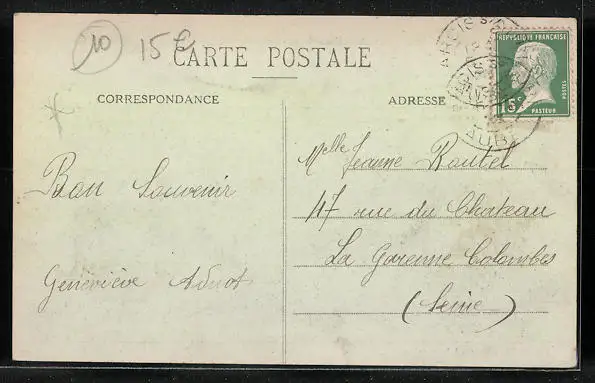 10
15€
CARTE POSTALE
CORRESPONDANCE
ADRESSE
REPUBLIQUE FRANÇAISE
15c
POSTES
PASTEUR
ARCIS S
AUBE
Bon Souvenir
Geneviève
Melle Jeanne Routel
47 rue du Chateau
La Garenne Colombes
(Seine)